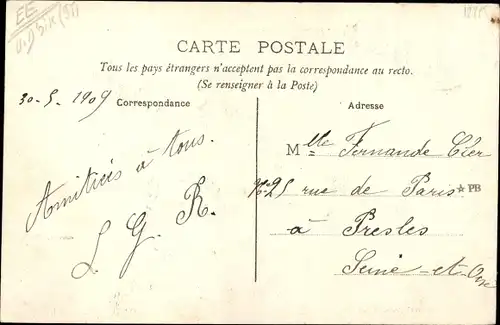 EE
CARTE POSTALE
Tous les pays étrangers n'acceptent pas la correspondance au recto.
(Se renseigner à la Poste)
30-5-1909
Correspondance
Amitiés à tous.
L. G. R.
Adresse
Mlle Fernande
rue de Paris ★ PB
à Presles
Seine-et-Oise